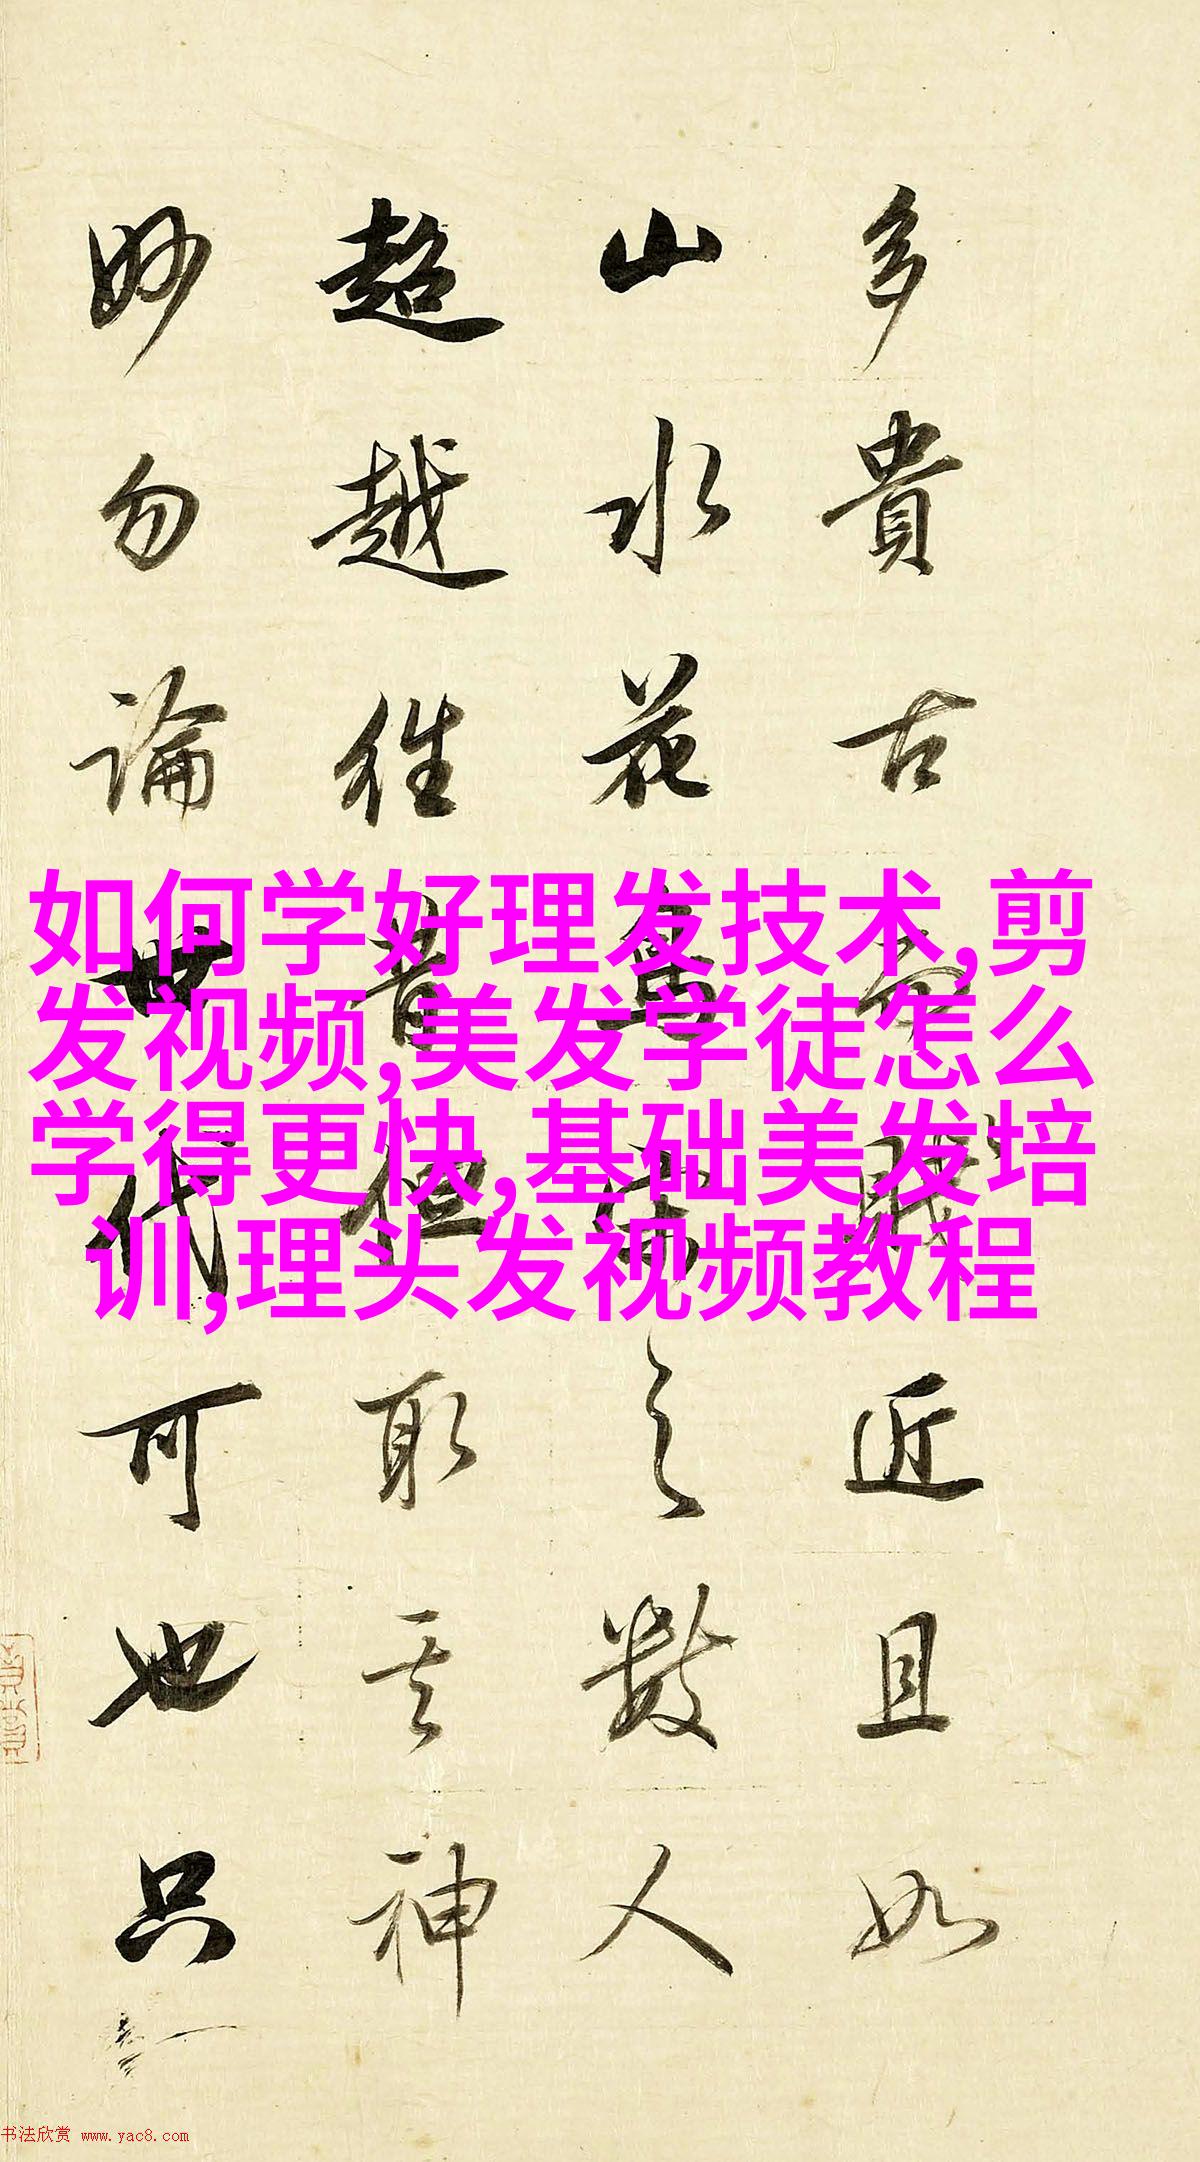 多貴古而賤近且如
山水花鳥之數人
超越往昔但取其神
妙勿論世代可也只
如何学好理发技术,剪
发视频,美发学徒怎么
学得更快,基础美发培
训,理头发视频教程
书法欣赏 www.yac8.com